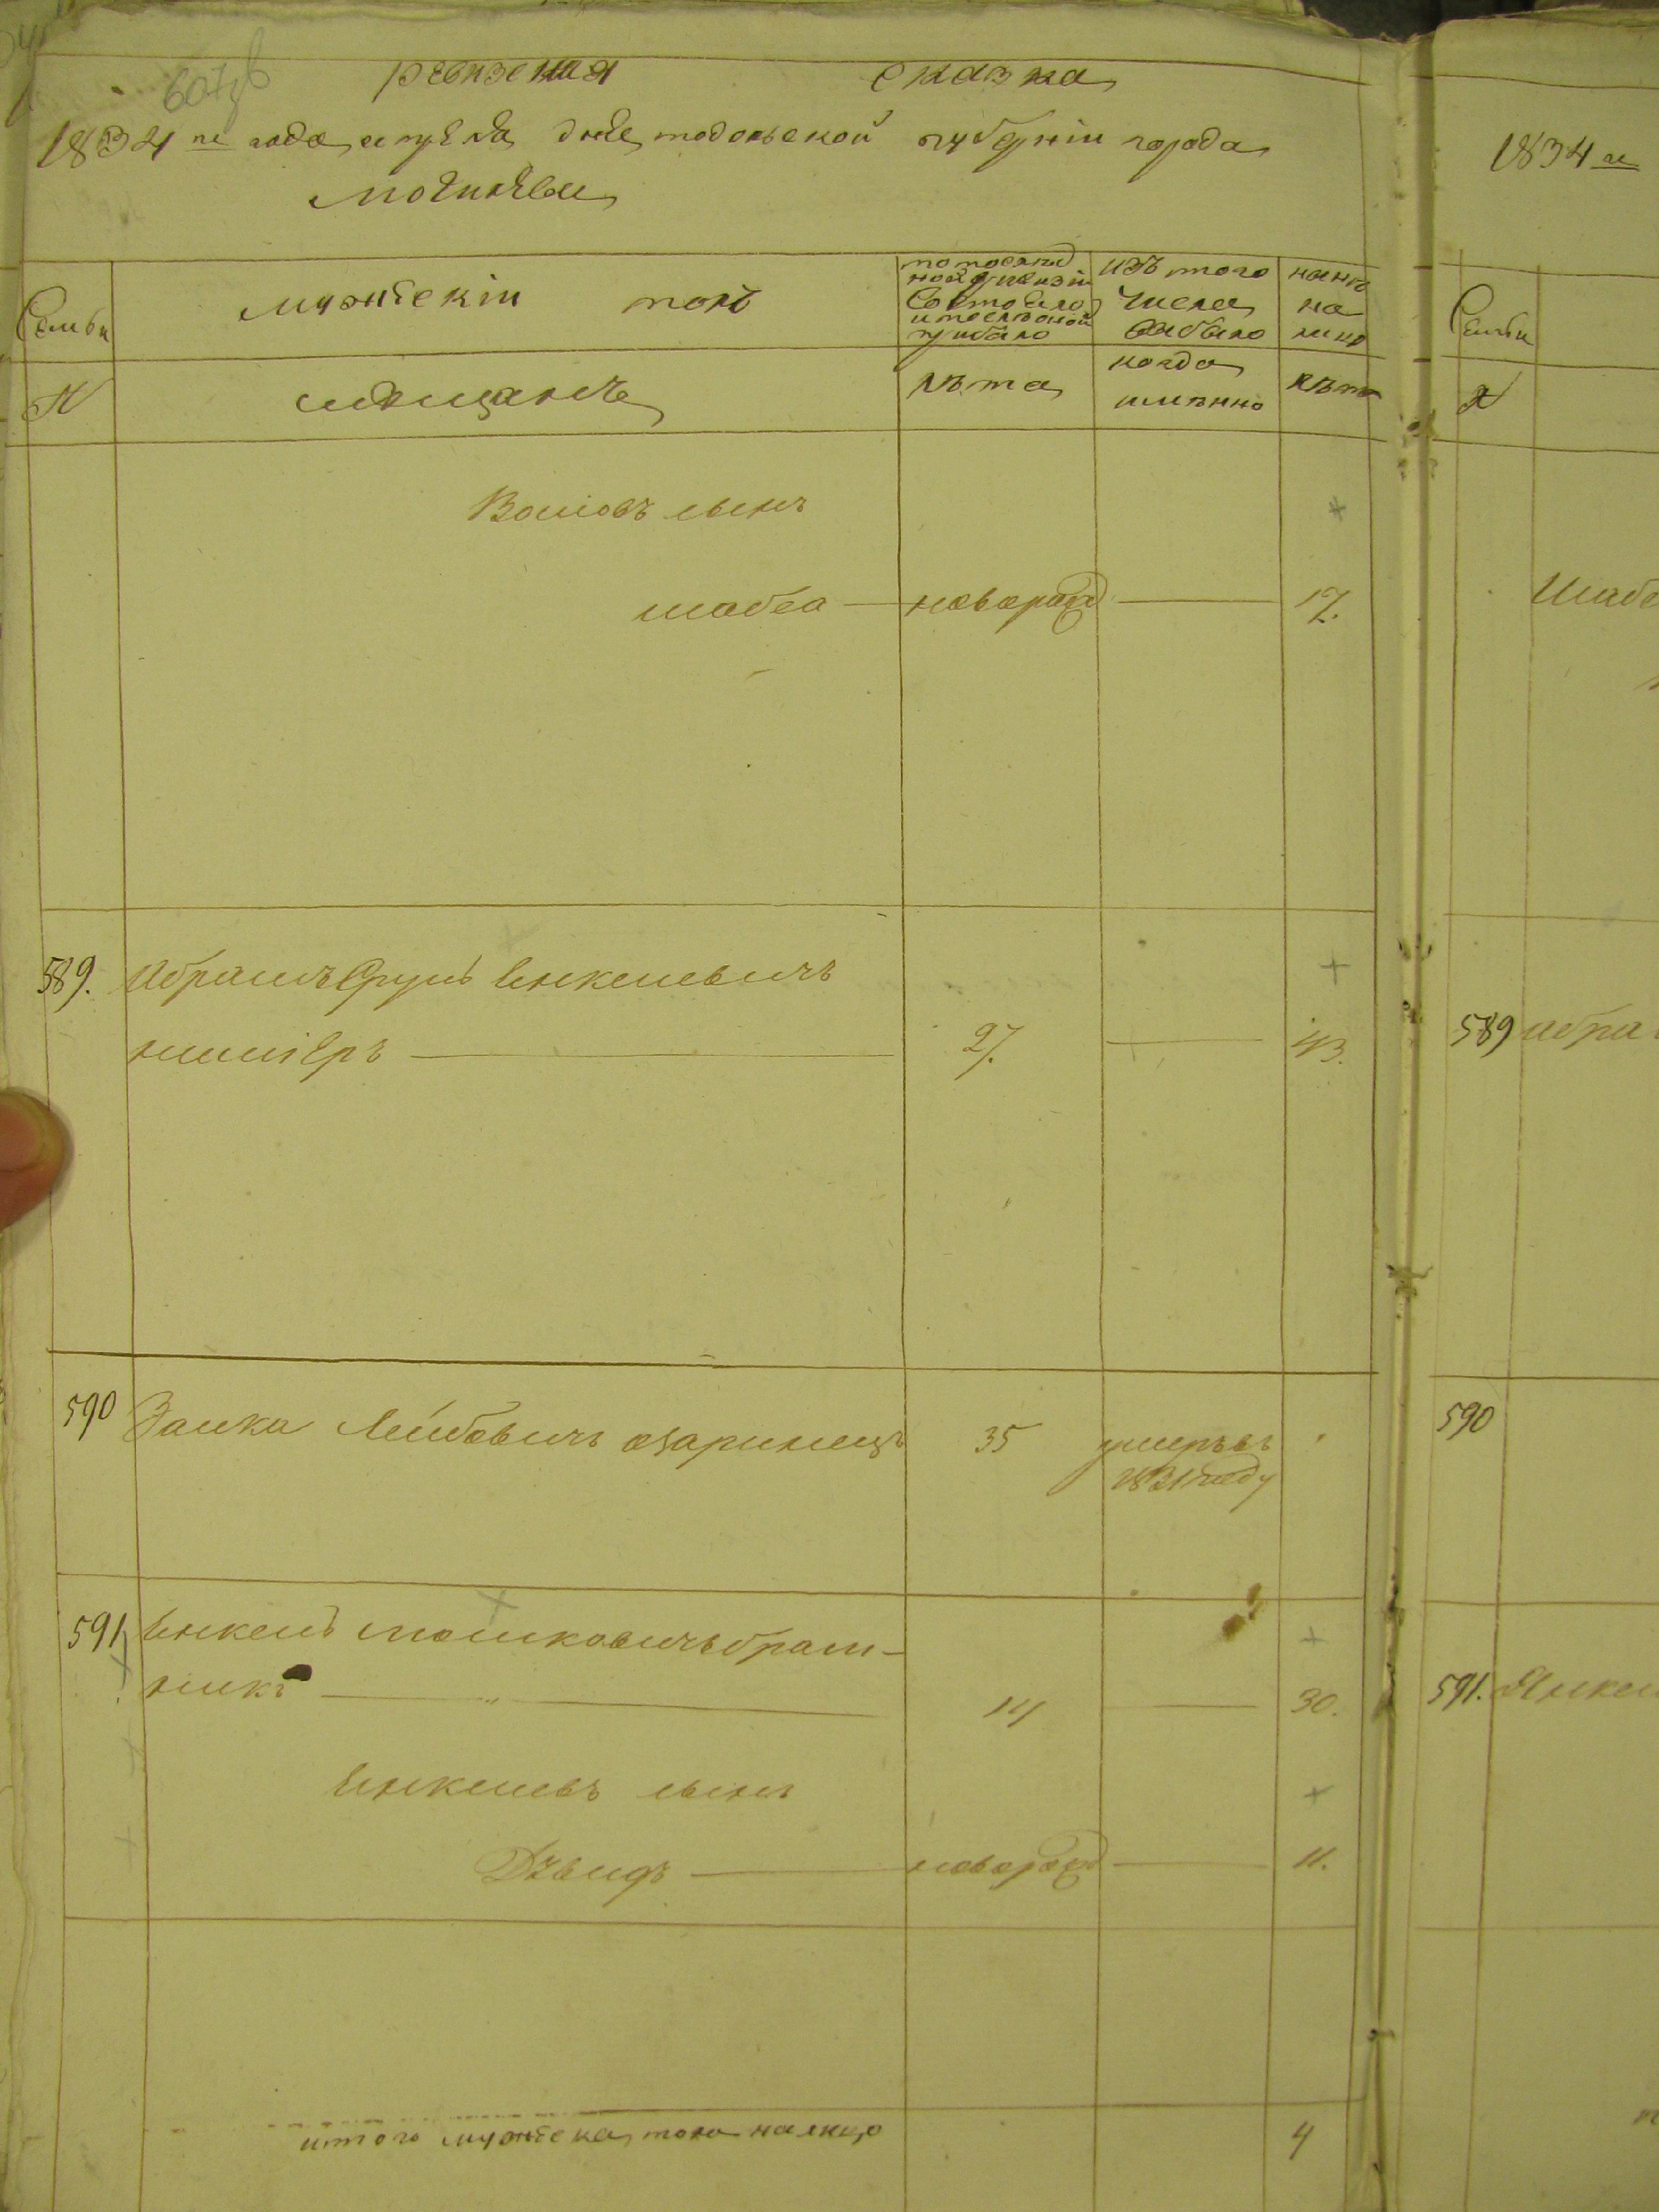 607 об
ревизская сказка
1834 го года апреля дня подольской губерніи города
могилева
Семьи
мужескій полъ
по последней ревизіи состояло и после оной прибыло
изъ того числа выбыло
нынѣ на лицо
N
мещанъ
лѣта
когда именно
лѣта
Волковъ сынъ
шабса новорожд 17.
589. Абрамъ Сруль Янкелевичъ
27. 43.
590 Замка Лейбовичъ озаринецъ 35 умеръ въ
1831 году
591 Янкель Мошковичъ брат-
никъ 14 30.
Янкелевъ сынъ
Давидъ новорожд 11.
итого мужеска пола налицо 4
1834 го
Семьи
N
Шабс
589 Абра
590
591. Янкел